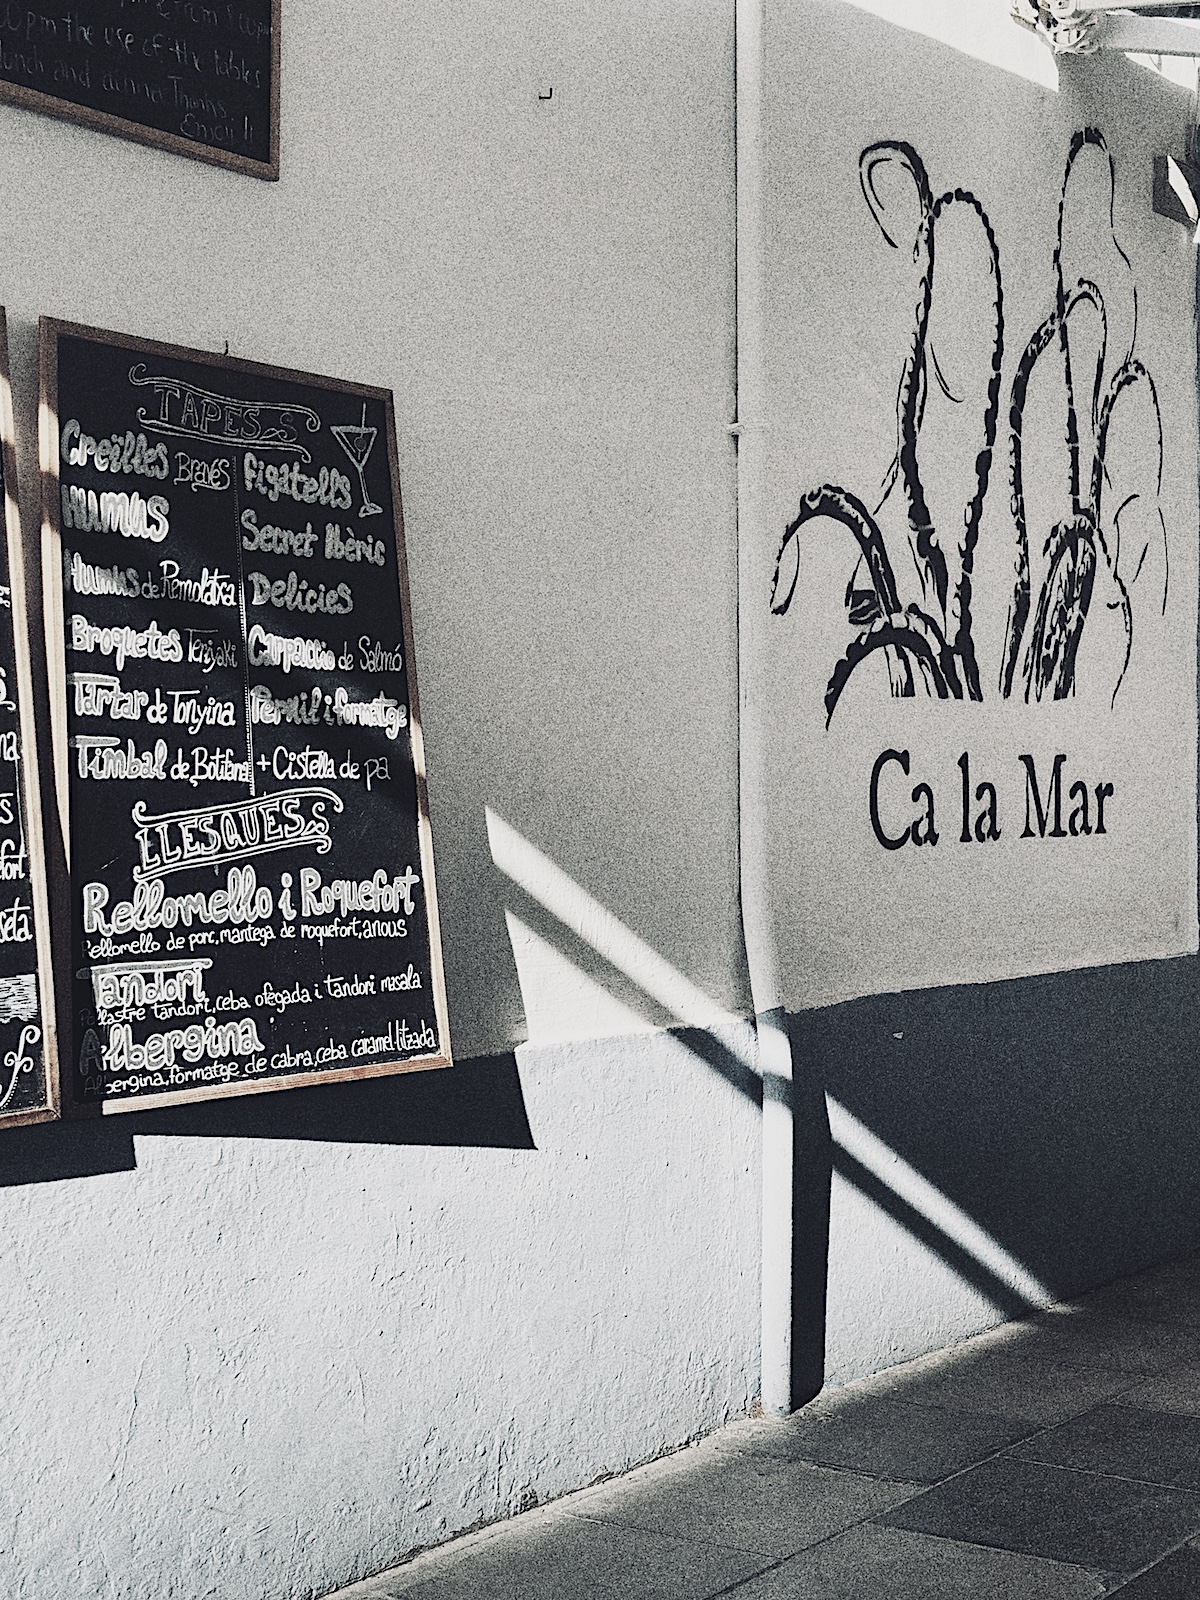 00pm the use of the tables
lunch and dinner Thanks
TAPES
Creïlles Braves
HUMUS
Humus de Remolatxa
Broquetes Teriyaki
Tartar de Tonyina
Timbal de Botifarra
Figatells
Secret Ibèric
Delícies
Carpaccio de Salmó
Pernil i formatge
+ Cistella de pa
LLESQUES
Rellomello i Roquefort
Rellomello de porc, mantega de roquefort, anous
Tandori
Pollastre tandori, ceba ofegada i tandori masala
Albergina
Albergina, formatge de cabra, ceba caramel·litzada
Ca la Mar